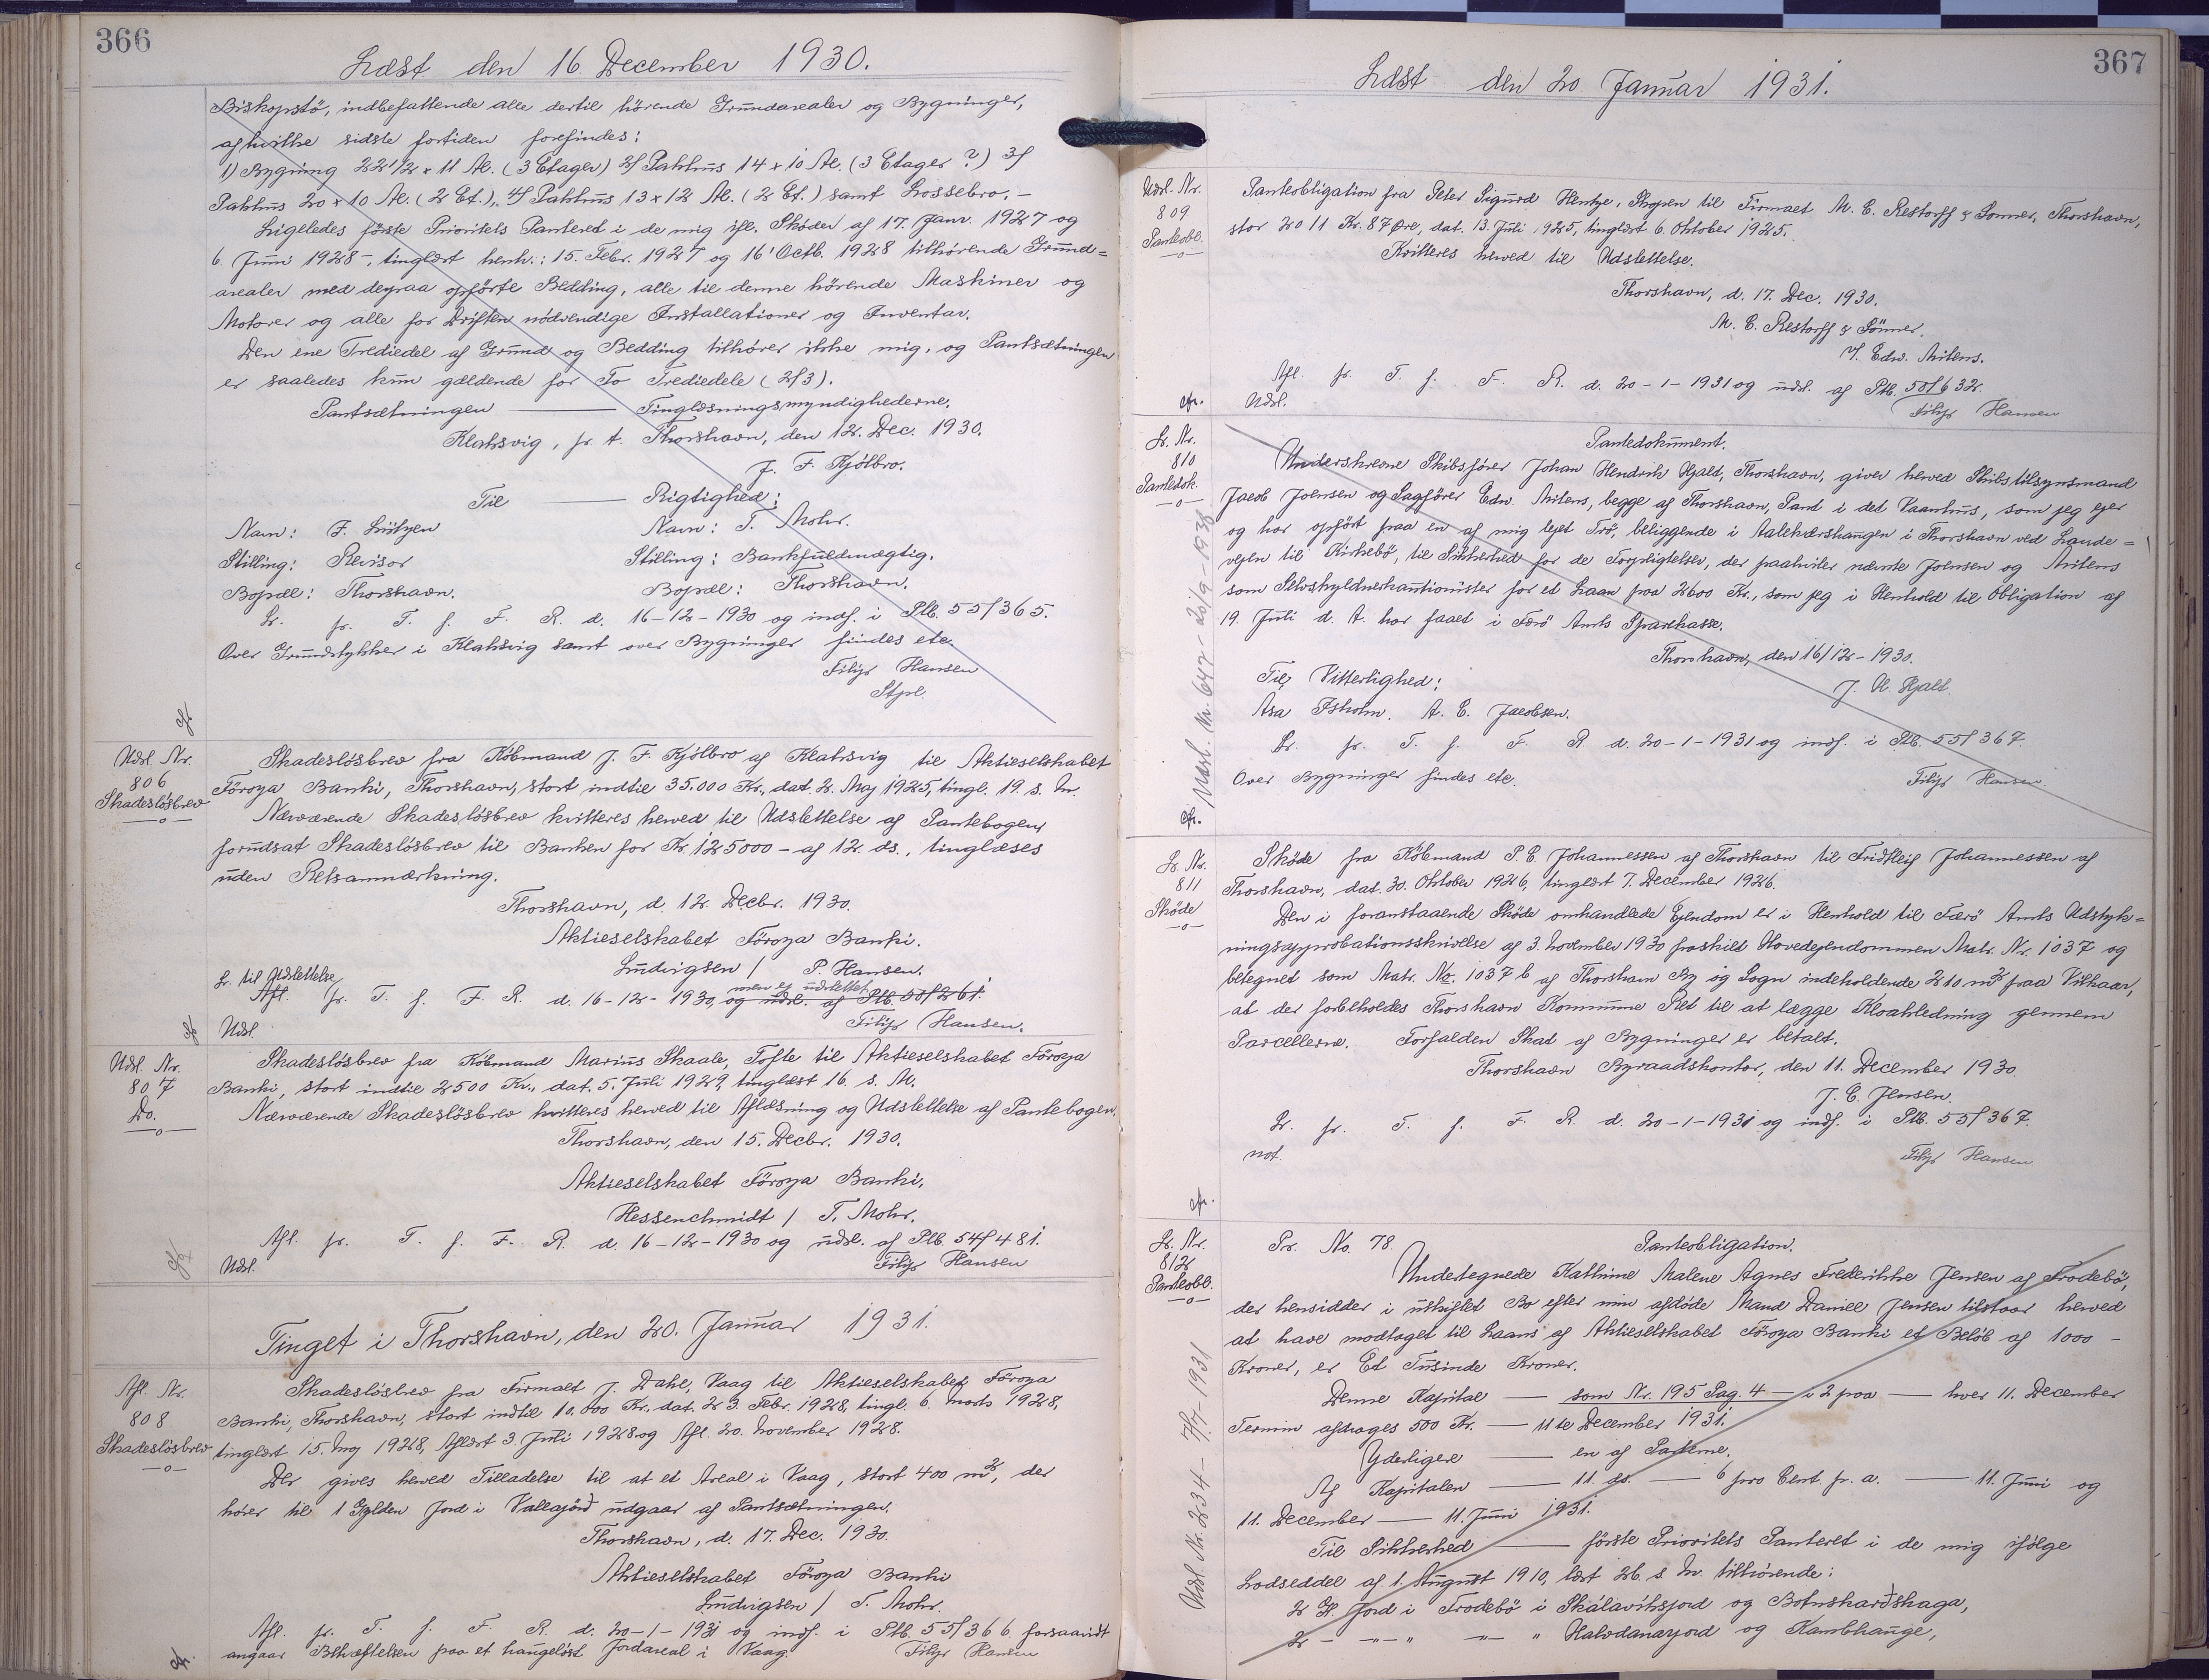 366
Læst den 16. December 1930.
Biskopstö, indbefattende alle dertil hörende Grundarealer og Bygninger,
af hvilke sidste fortiden forefindes:
1) Bygning 22 1/2 x 11 Al. (3 Etager) 2/ Pakhus 14 x 10 Al. (3 Etager ?) 3/
Pakhus 20 x 10 Al. (2 Et.), 4/ Pakhus 13 x 12 Al. (2 Et.) samt Lossebro. -
Ligeledes förste Prioritets Panteret i de mig ifl. Skøder af 17. Janr. 1927 og
6. Juni 1928 -, tinglæst henh.: 15. Febr. 1927 og 16' Octb. 1928 tilhørende Grund=
arealer med derpaa opförte Bedding, alle til denne hörende Maskiner og
Motorer og alle for Driften nödvendige Installationer og Inventar.
Den ene Trediedel af Grund og Bedding tilhører ikke mig, og Pantsætningen
er saaledes kun gældende for To Trediedele (2/3).
Pantsætningen —— Tinglæsningsmyndighederne.
Klaksvig, p. t. Thorshavn, den 12. Dec. 1930.
J. F. Kjölbro.
Til —— Rigtighed:
Navn: F. Lützen Navn: T. Mohr.
Stilling: Revisor Stilling: Bankfuldmægtig.
Bopæl: Thorshavn. Bopæl: Thorshavn.
L. p. T. f. F. R. d. 16-12-1930 og indf. i Ptb. 55/365.
Over Grundstykker i Klaksvig samt over Bygninger findes etc.
Filip Hansen
Stpl.
Udsl. Nr.
806
Skadeslösbrev
—o—
Skadeslösbrev fra Købmand J. F. Kjölbro af Klaksvig til Aktieselskabet
Föroya Banki, Thorshavn, stort indtil 35.000 Kr., dat. 2. Maj 1925, tingl. 19. s. M.
Nærværende Skadeslösbrev kvitteres herved til Udslettelse af Pantebogen
forudsat Skadeslösbrev til Banken for Kr. 125000 - af 12. ds., tinglæses
uden Retsanmærkning.
Thorshavn, d. 12. Decbr. 1930.
Aktieselskabet Föroya Banki.
Ludvigsen / P. Hansen.
L. til Udslettelse
men ej udslettet
Afl. p. T. f. F. R. d. 16-12-1930, og udsl. af Ptb. 50/261.
Udsl. Filip Hansen.
Udsl. Nr.
807
Do.
—o—
Skadeslösbrev fra Købmand Marius Skaale, Tofte til Aktieselskabet Föroya
Banki, stort indtil 2500 Kr., dat. 5. Juli 1929, tinglæst 16. s. M.
Nærværende Skadeslösbrev kvitteres herved til Aflæsning og Udslettelse af Pantebogen.
Thorshavn, den 15. Decbr. 1930.
Aktieselskabet Föroya Banki.
Hessenchmidt / T. Mohr.
Afl. p. T. f. F. R. d. 16-12-1930 og udsl. af Ptb 54/481.
Udsl. Filip Hansen
Tinget i Thorshavn, den 20. Januar 1931.
Afl. Nr.
808
Skadeslösbrev
—o—
Skadeslösbrev fra Firmaet J. Dahl, Vaag til Aktieselskabet Föroya
Banki, Thorshavn, stort indtil 10.000 Kr., dat. 23. Febr. 1928, tingl. 6. Marts 1928,
tinglæst 15. Maj 1928, Aflæst 3. Juli 1928 og Afl. 20. November 1928.
Der gives herved Tilladelse til at et Areal i Vaag, stort 400 m2, der
hører til 1 Gylden Jord i Vallajörd udgaar af Pantsætningen.
Thorshavn, d. 17. Dec. 1930.
Aktieselskabet Föroya Banki
Ludvigsen / T. Mohr.
Afl. p. T. f. F. R. d. 20-1-1931 og indf. i Ptb. 55/366 forsaavidt
angaar Behæftelsen paa et haugeløst Jordareal i Vaag. Filip Hansen
367
Læst den 20. Januar 1931.
Udsl. Nr.
809
Panteobl.
—o—
Panteobligation fra Peter Sigurd Hentze, Skopen til Firmaet M. C. Restorff & Sønner, Thorshavn,
stor 2011 Kr. 87 Øre, dat. 13. Juli 1925, tinglæst 6. Oktober 1925.
Kvitteres herved til Udslettelse.
Thorshavn, d. 17. Dec. 1930.
M. C. Restorff & Sönner.
V. Edw. Mitens.
Afl. p. T. f. F. R. d. 20-1-1931 og udsl. af Ptb. 50/632.
Udsl. Filip Hansen
L. Nr.
810
Pantedok.
—o—
Pantedokument.
Underskrevne Skibsfører Johan Hendrik Hjalt, Thorshavn, giver herved Skibstilsynsmand
Jacob Joensen og Sagfører Edw. Mitens, begge af Thorshavn, Pant i det Vaanhus, som jeg ejer
og har opført paa en af mig lejet Trö, beliggende i Aalekærshaugen i Thorshavn ved Lande=
vejen til Kirkebø, til Sikkerhed for de Forpligtelser, der paahviler nævnte Joensen og Mitens
som Selvskyldnerkautionister for et Laan paa 2600 Kr., som jeg i Henhold til Obligation af
19. Juli d. A. har faaet i Færö Amts Sparekasse.
Thorshavn, den 16/12-1930.
Til Vitterlighed: J. H. Hjalt.
Asa Isholm. A. C. Jacobsen.
L. p. T. f. F. R. d. 20-1-1931 og indf. i Ptb. 55/367.
Over Bygninger findes etc. Filip Hansen.
Udsl. Nr. 647 - 20/9-1938
L. Nr.
811
Skøde
—o—
Skøde fra Købmand P. C. Johannessen af Thorshavn til Fridtleif Johannessen af
Thorshavn, dat. 30. Oktober 1926, tinglæst 7. December 1926.
Den i foranstaaende Skøde omhandlede Ejendom er i Henhold til Færö Amts Udstyk=
ningsapprobationsskrivelse af 3. November 1930 fraskilt Hovedejendommen Matr. Nr. 1037 og
betegnet som Matr. No. 1037 b af Thorshavn By og Sogn indeholdende 210 m2 paa Vilkaar,
at der forbeholdes Thorshavn Kommune Ret til at lægge Kloakledning gennem
Parcellerne. Forfalden Skat af Bygninger er betalt.
Thorshavn Byraadskontor, den 11. December 1930.
J. C. Jensen.
L. p. T. f. F. R. d. 20-1-1931 og indf. i Ptb. 55/367.
not. Filip Hansen
L. Nr.
812
Panteobl.
—o—
Pr. No. 78. Panteobligation.
Undertegnede Kathrine Malene Agnes Frederikke Jensen af Frodebö,
der hensidder i uskiftet Bo efter min afdöde Mand Daniel Jensen tilstaar herved
at have modtaget til Laans af Aktieselskabet Föroya Banki et Beløb af 1000 -
Kroner, er Et Tusinde Kroner.
Denne Kapital —— som Nr. 195 Pag. 4 —— i 2 paa —— hver 11. December
Termin afdrages 500 Kr. —— 11te December 1931.
Yderligere —— en af Parterne.
Af Kapitalen —— 11. ds. —— 6 pro Cent p. a. —— 11. Juni og
11. December —— 11. Juni 1931.
Til Sikkerhed —— förste Prioritets Panteret i de mig ifølge
Lodseddel af 1. August 1910, læst 26. s. M. tilhørende:
2 G. Jord i Frodebö i Skálavíksjord og Botnskarðshaga,
2 - -"-" -"- " Halvdanarjord og Kambhauge,
Udsl. Nr. 234 - 7/7-1931